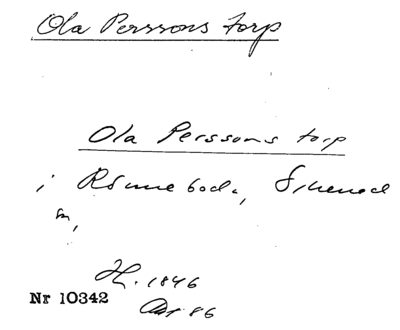 Ola Perssons torp
Ola Perssons torp
i Rönnebod.,
sn,
H. 1846
Nr 10342
86